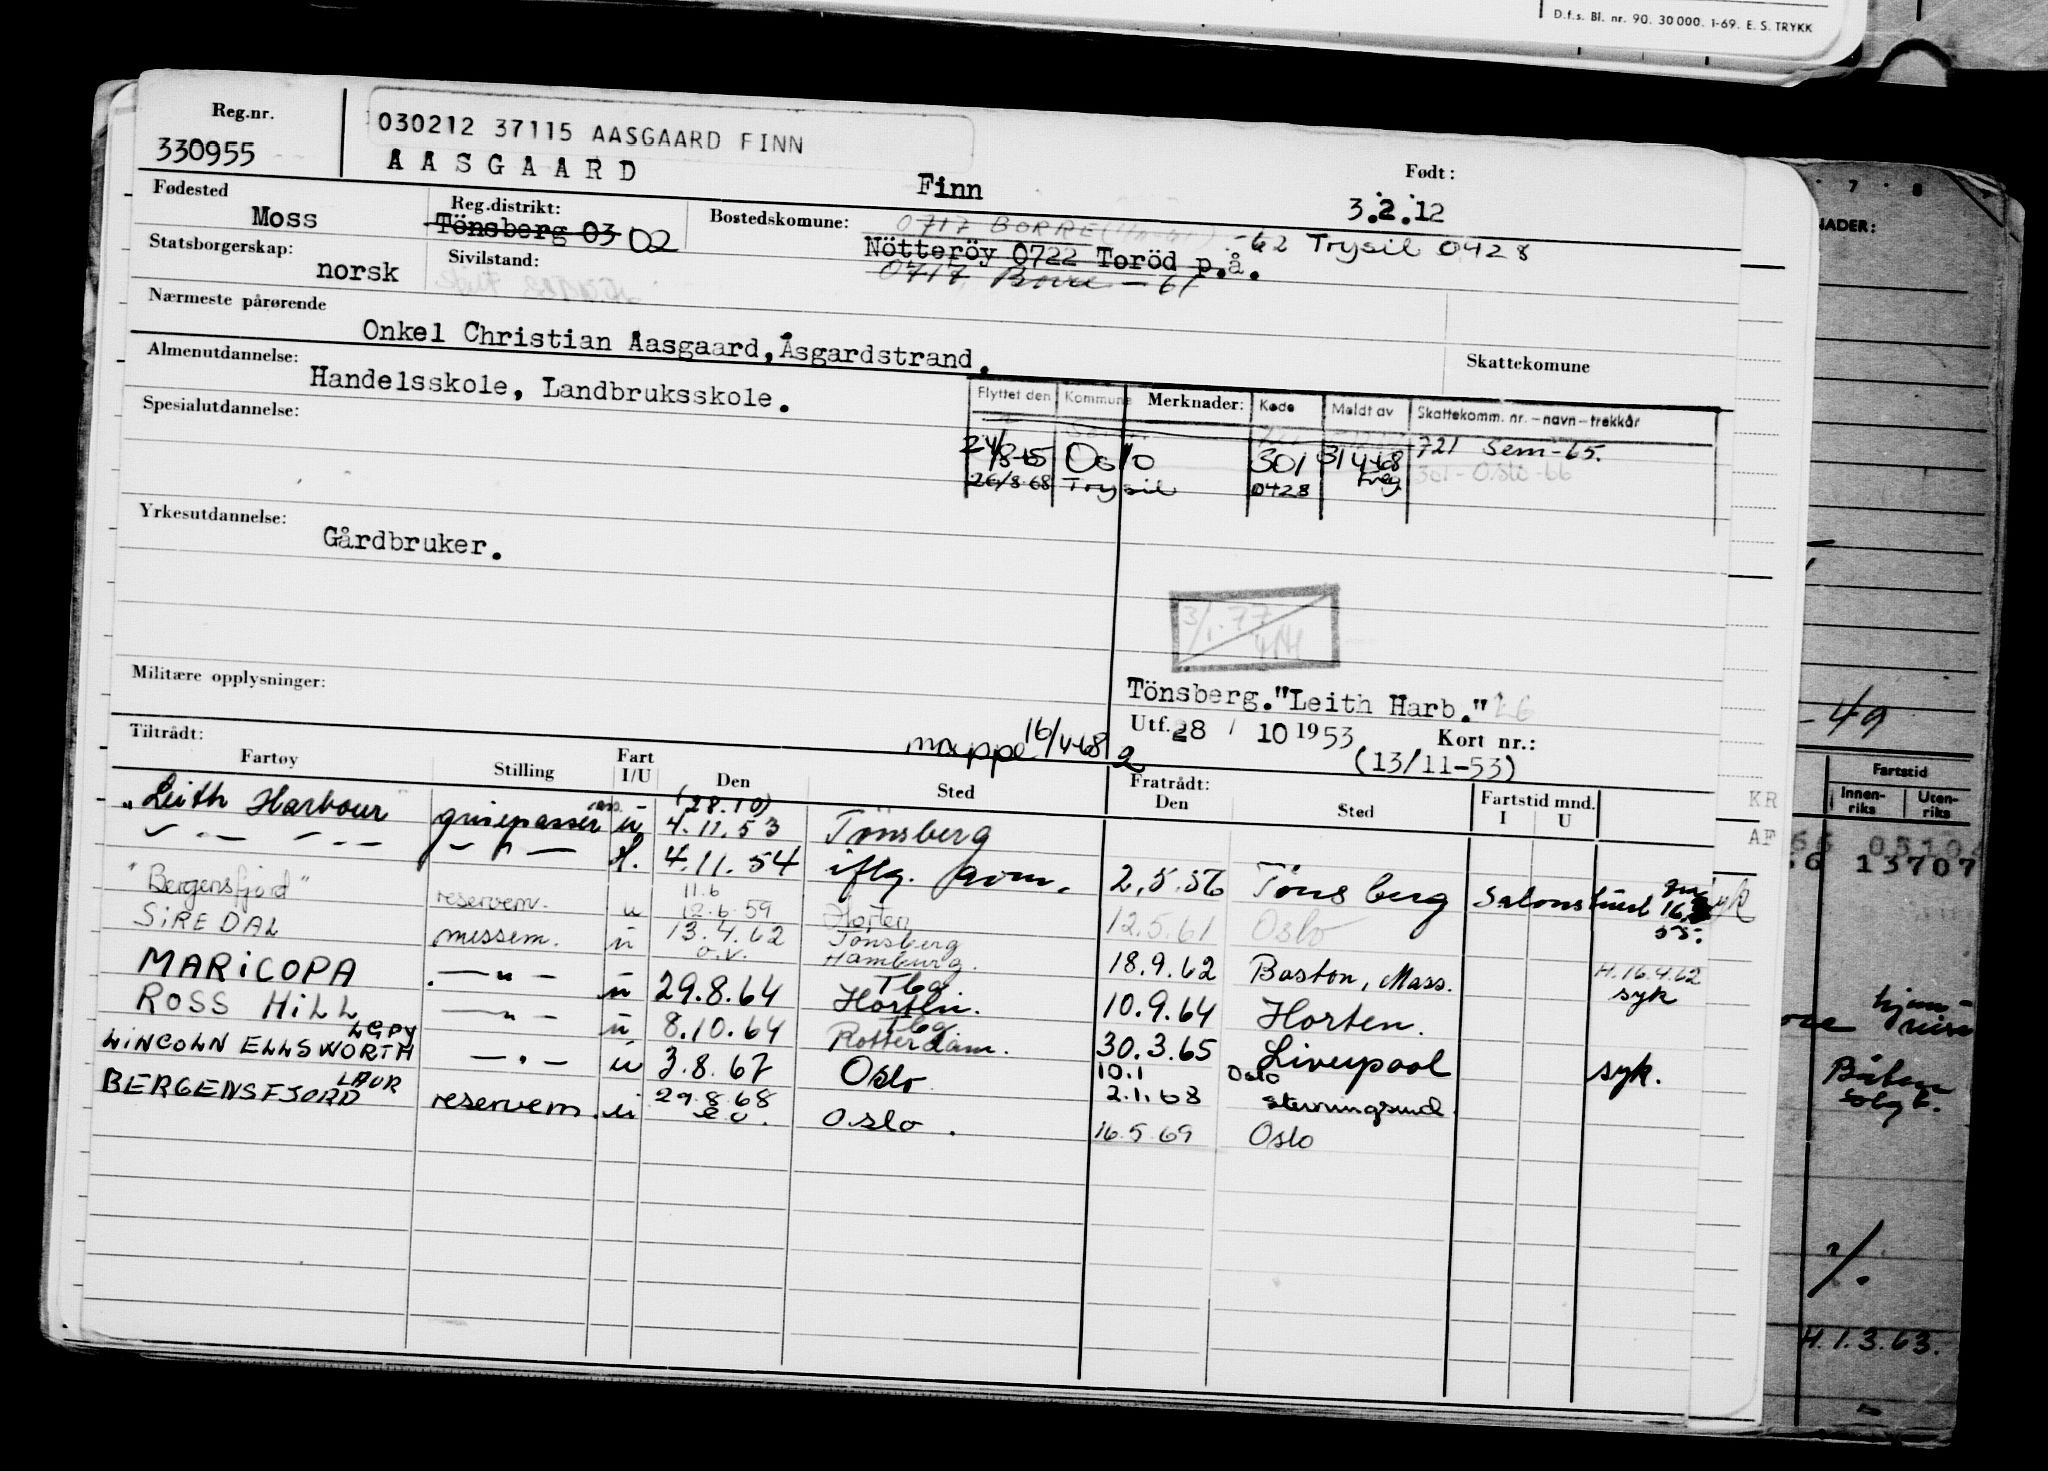 D.f.s. Bl. nr. 90. 30 000. 1-69. E. S. TRYKK
Reg.nr.
330955
030212 37115 AASGAARD FINN
AASGAARD
Finn
Født:
3.2.12
Fødested
Moss
Reg.distrikt:
Tönsberg 03 02
Bostedskomune:
0717 BORRE
-62 Trysil 0428
Nötteröy 0722 Toröd p.å.
0717 Borre - 61
Statsborgerskap:
norsk
Sivilstand:
Nærmeste pårørende
Onkel Christian Aasgaard, Åsgardstrand.
Skattekomune
Almenutdannelse:
Handelsskole, Landbruksskole.
Flyttet den Kommune Merknader: Kode Meldt av Skattekomm. nr. – navn – trekkår
721 Sem-65.
Oslo 301 31/4-68 301-Oslo-66
26/8-68 Trysil 0428
Spesialutdannelse:
Yrkesutdannelse:
Gårdbruker.
3/1.77
Militære opplysninger:
Tönsberg."Leith Harb."
Utf. 28 / 10 1953 Kort nr.:
mappe 16/4-68 2
(13/11-53)
Tiltrådt:
Fartøy Stilling Fart I/U Den Sted Fratrådt: Den Sted Fartstid mnd. I U
"Leith Harbour" grisepasser u (28.10) 4.11.53 Tönsberg
4.11.54 iflg. 2.5.56 Tönsberg
"Bergensfjord" reservem. u 11.6 12.6.59 Horten 12.5.61 Oslo
SIREDAL messem. u 13.4.62 o.v. Tönsberg Hamburg. 18.9.62 Boston, Mass. H.16.4.62 syk
MARICOPA — " — u 29.8.64 Tbg. Horten. 10.9.64 Horten.
ROSS HILL — " — u 8.10.64 Tbg. Rotterdam. 30.3.65 Liverpool syk.
LINCOLN ELLSWORTH LGPY — " — u 3.8.67 Oslo 10.1 2.1.68 Oslo
BERGENSFJORD LAUR reservem. u 29.8.68 Oslo. 16.5.69 Oslo
7 8
KR
AF
- 49
Fartstid
Innen-riks Uten-riks
13707
H.1.3.63.